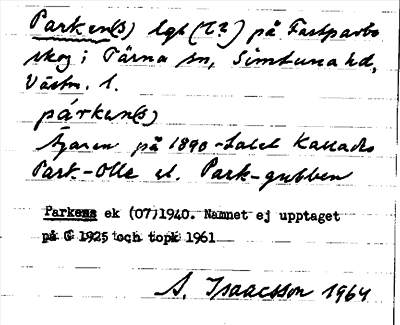 Parken(s) lgt (t?) på Fastparbo
skog i Tärna sn, Simtuna hd,
Västm. l.
párken(s)
Ägaren på 1890-talet kallades
Park-Olle el. Park-gubben
Parkens ek (07)1940. Namnet ej upptaget
på G 1925 och topk 1961
A. Isaacsson 1964